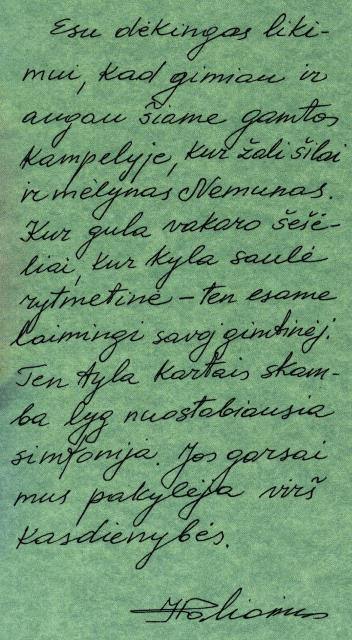 Esu dėkingas liki-
mui, kad gimiau ir
augau šiame gamtos
kampelyje, kur žali šilai
ir mėlynas Nemunas.
Kur gula vakaro šešė-
liai, kur kyla saulė
rytmetinė – ten esame
laimingi savoj gimtinėj.
Ten tyla kartais skam-
ba lyg nuostabiausia
simfonija. Jos garsai
mus pakylėja virš
kasdienybės.